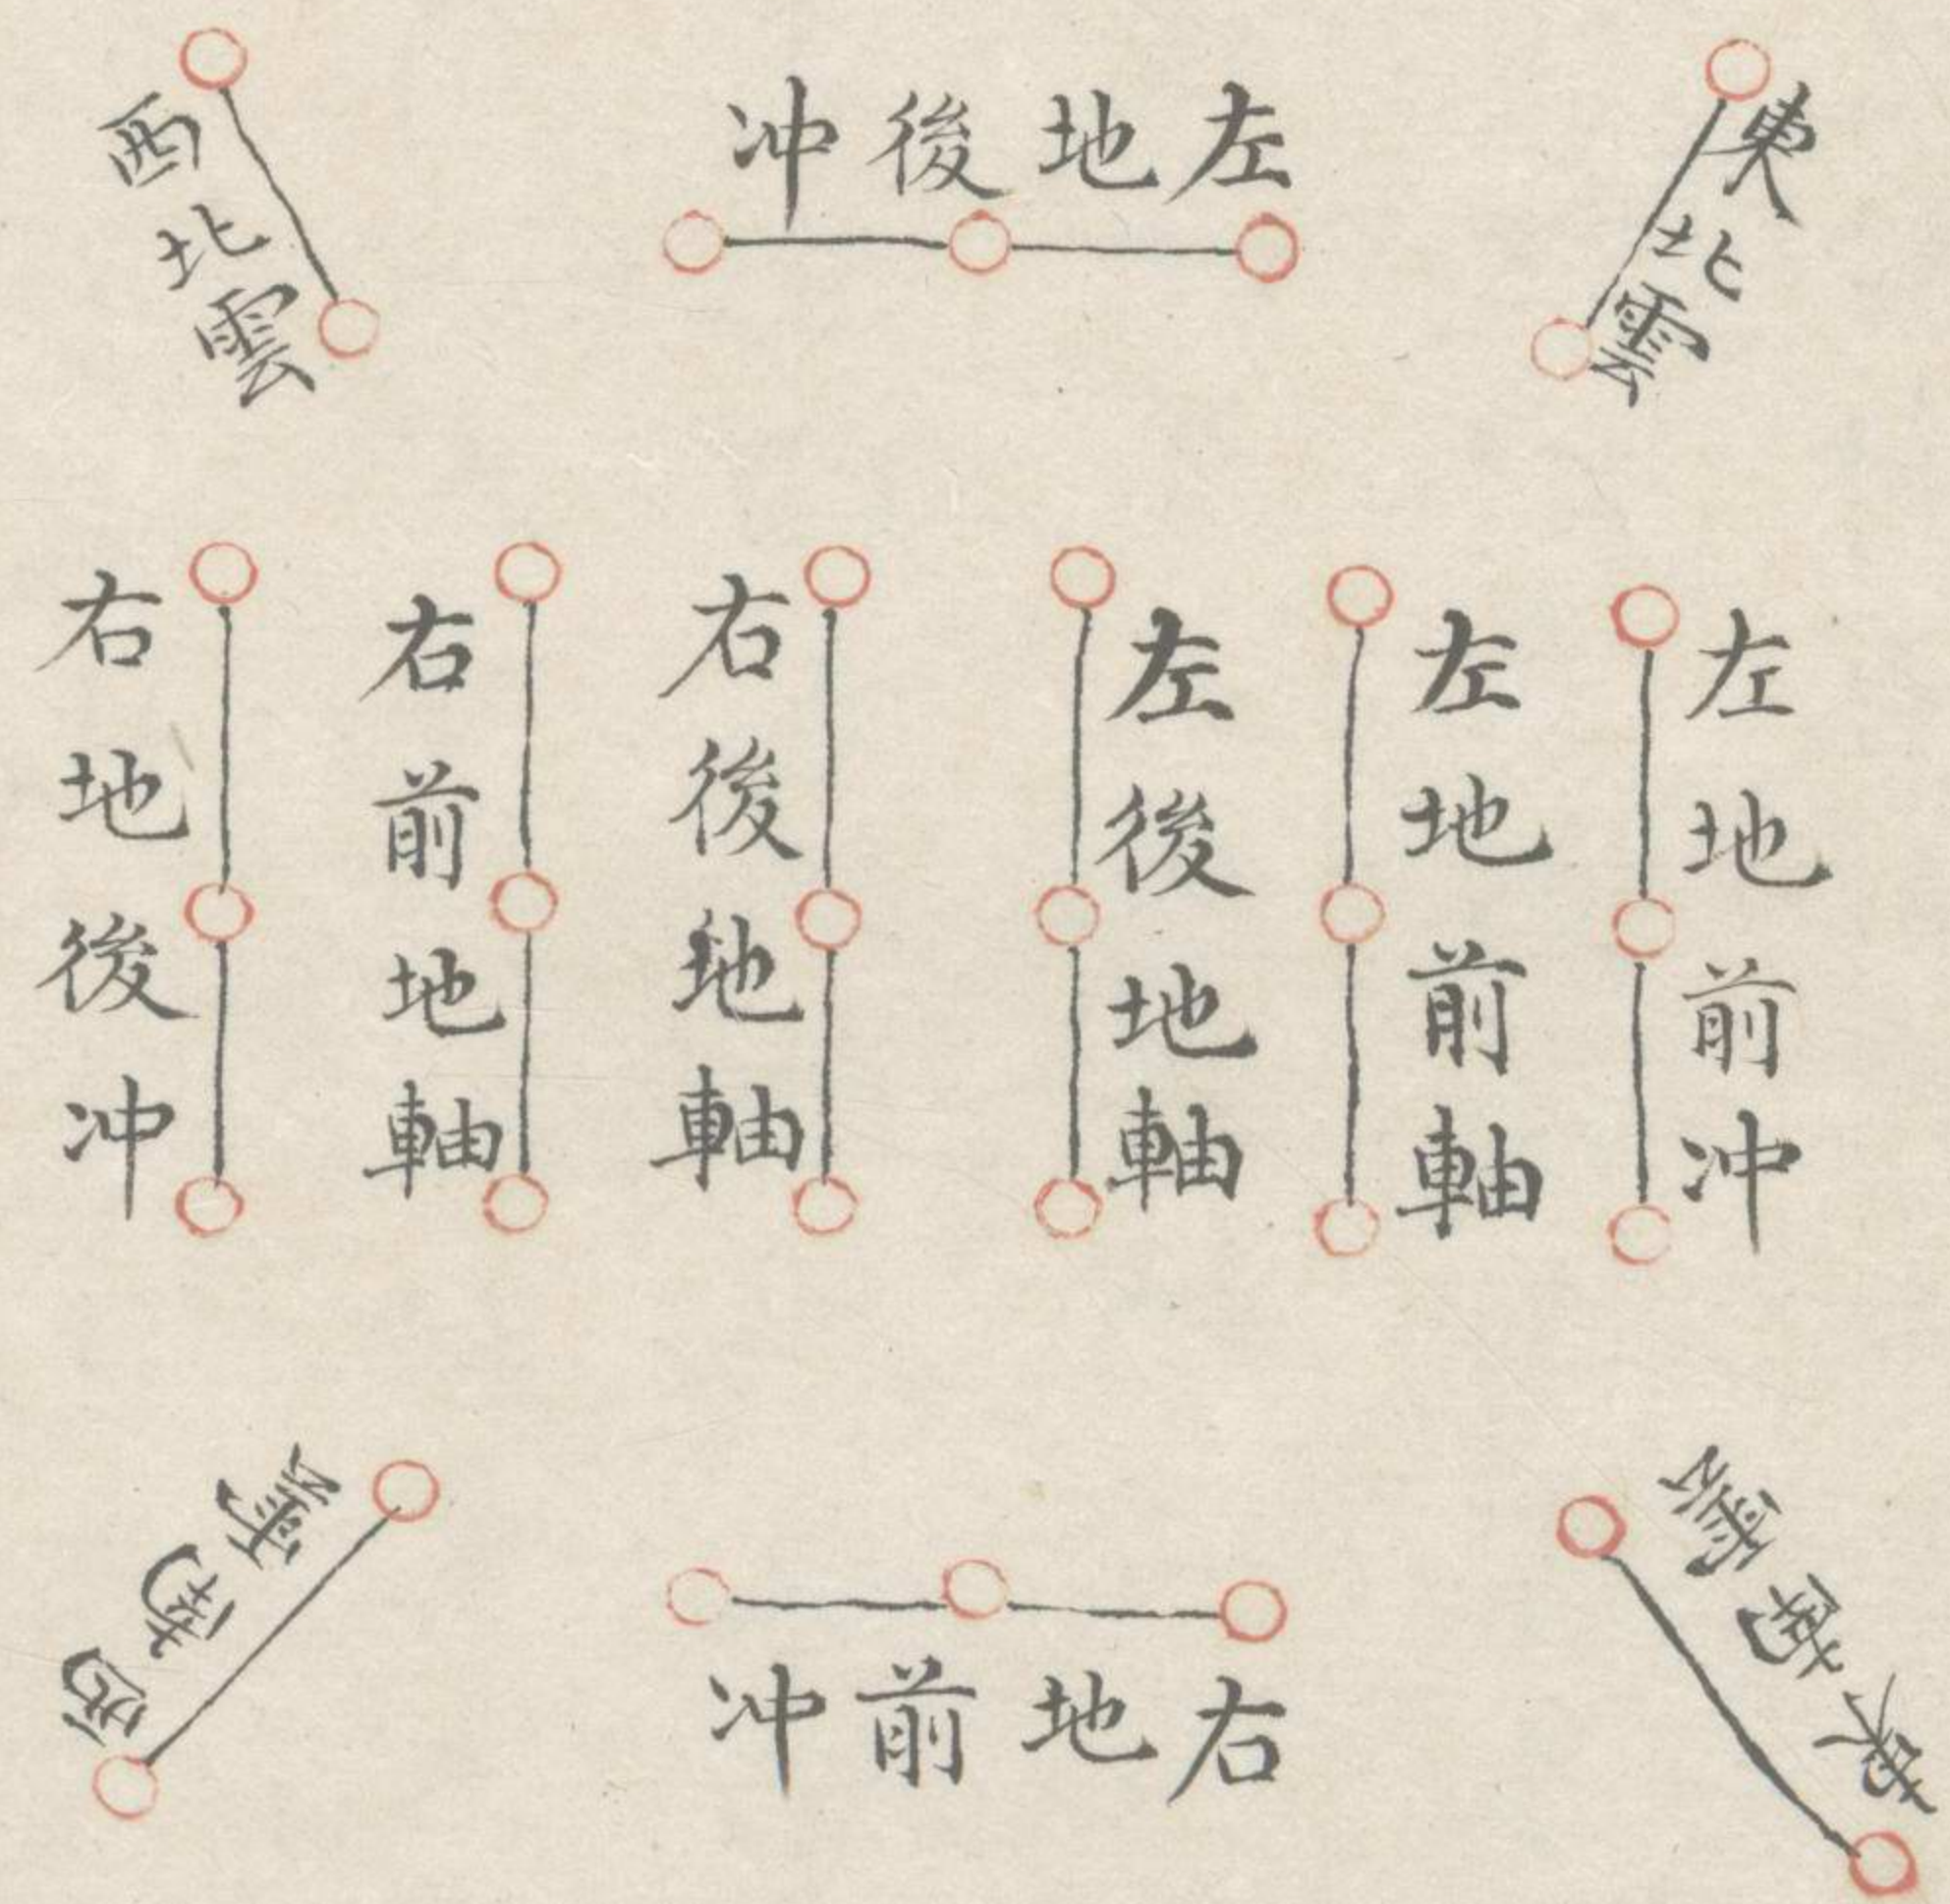 東北雲
左地後冲
西北雲
左地前冲
左地前軸
左後地軸
右後地軸
右前地軸
右地後冲
東南雲
右地前冲
西南雲